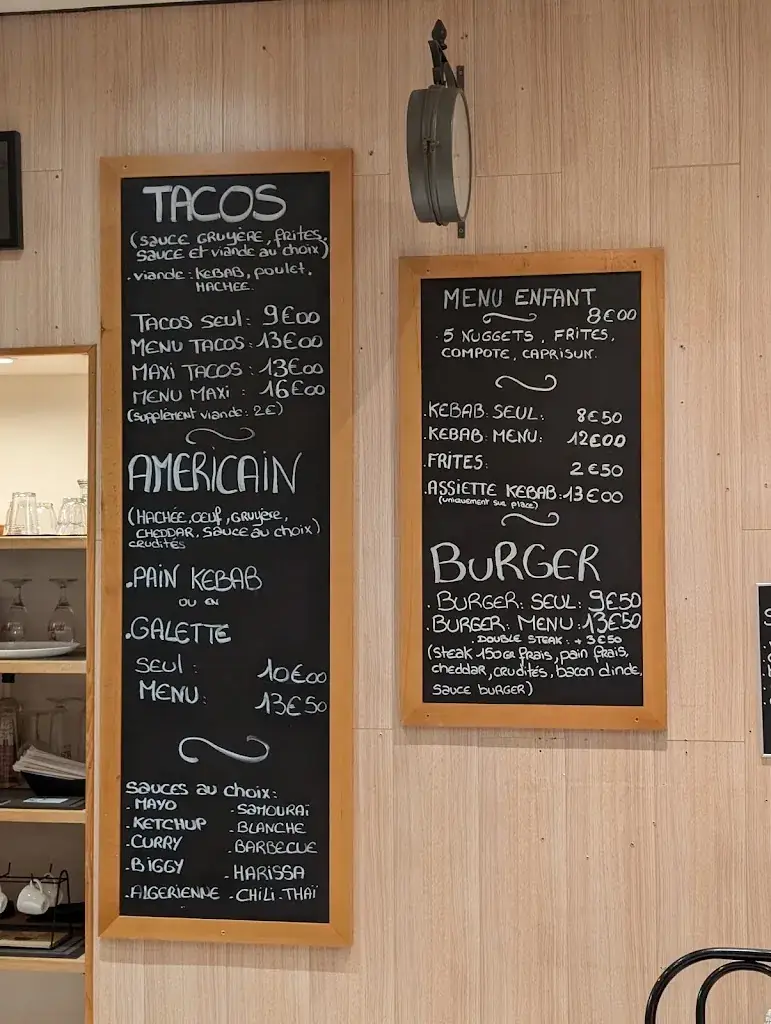 TACOS
(SAUCE GRUYÈRE, FRITES,
SAUCE ET VIANDE AU CHOIX)
. VIANDE: KEBAB, POULET.
HACHÉE.
TACOS SEUL: 9€00
MENU TACOS: 13€00
MAXI TACOS: 13€00
MENU MAXI : 16€00
(SUPPLÉMENT VIANDE: 2€)
AMERICAIN
(HACHÉE, OEUF, GRUYÈRE,
CHEDDAR, SAUCE AU CHOIX)
CRUDITÉS
.PAIN KEBAB
OU EN
.GALETTE
SEUL : 10€00
MENU: 13€50
SAUCES AU CHOIX:
-MAYO
-KETCHUP
-CURRY
-BIGGY
-ALGERIENNE
-SAMOURAÏ
-BLANCHE
-BARBECUE
-HARISSA
-CHILI-THAÏ
MENU ENFANT
8€00
. 5 NUGGETS, FRITES,
COMPOTE, CAPRISUN.
.KEBAB: SEUL: 8€50
.KEBAB MENU: 12€00
.FRITES: 2€50
.ASSIETTE KEBAB: 13€00
(UNIQUEMENT SUR PLACE)
BURGER
. BURGER: SEUL: 9€50
. BURGER: MENU: 13€50
. DOUBLE STEAK: + 3€50
(STEAK 150GR FRAIS, PAIN FRAIS,
CHEDDAR, CRUDITÉS, BACON DINDE,
SAUCE BURGER)